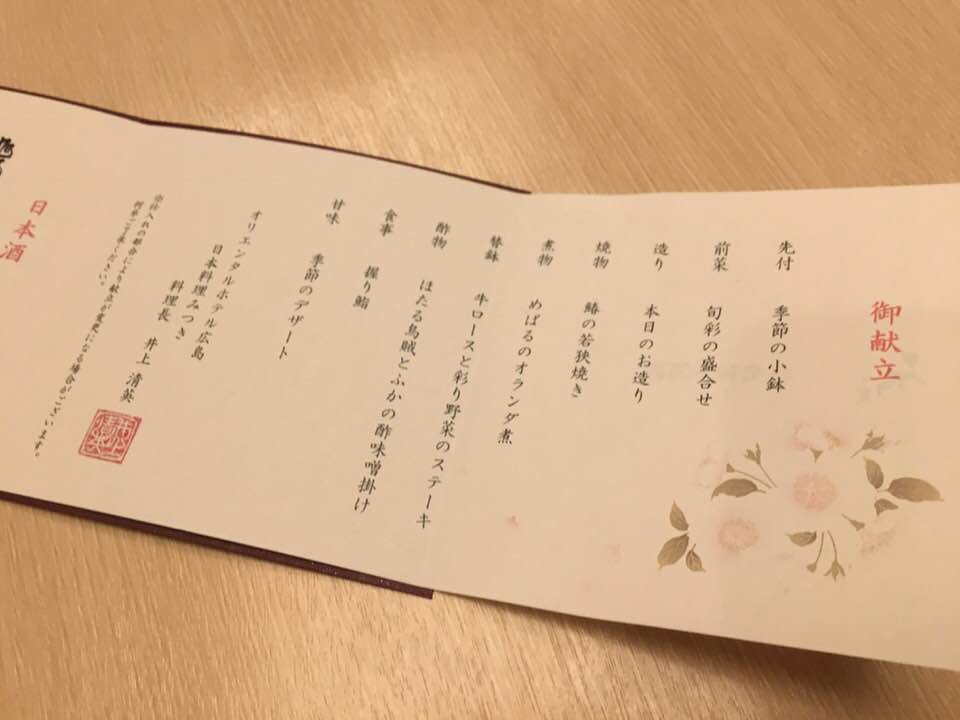 御献立
先付　季節の小鉢
前菜　旬彩の盛合せ
造り　本日のお造り
焼物　鰆の若狭焼き
煮物　めばるのオランダ煮
替鉢　牛ロースと彩り野菜のステーキ
酢物　ほたる烏賊とふかの酢味噌掛け
食事　握り鮨
甘味　季節のデザート
オリエンタルホテル広島
日本料理みつき
料理長　井上 清英
※仕入れの都合により献立が変更になる場合がございます。
何卒ご了承くださいませ。
日本酒